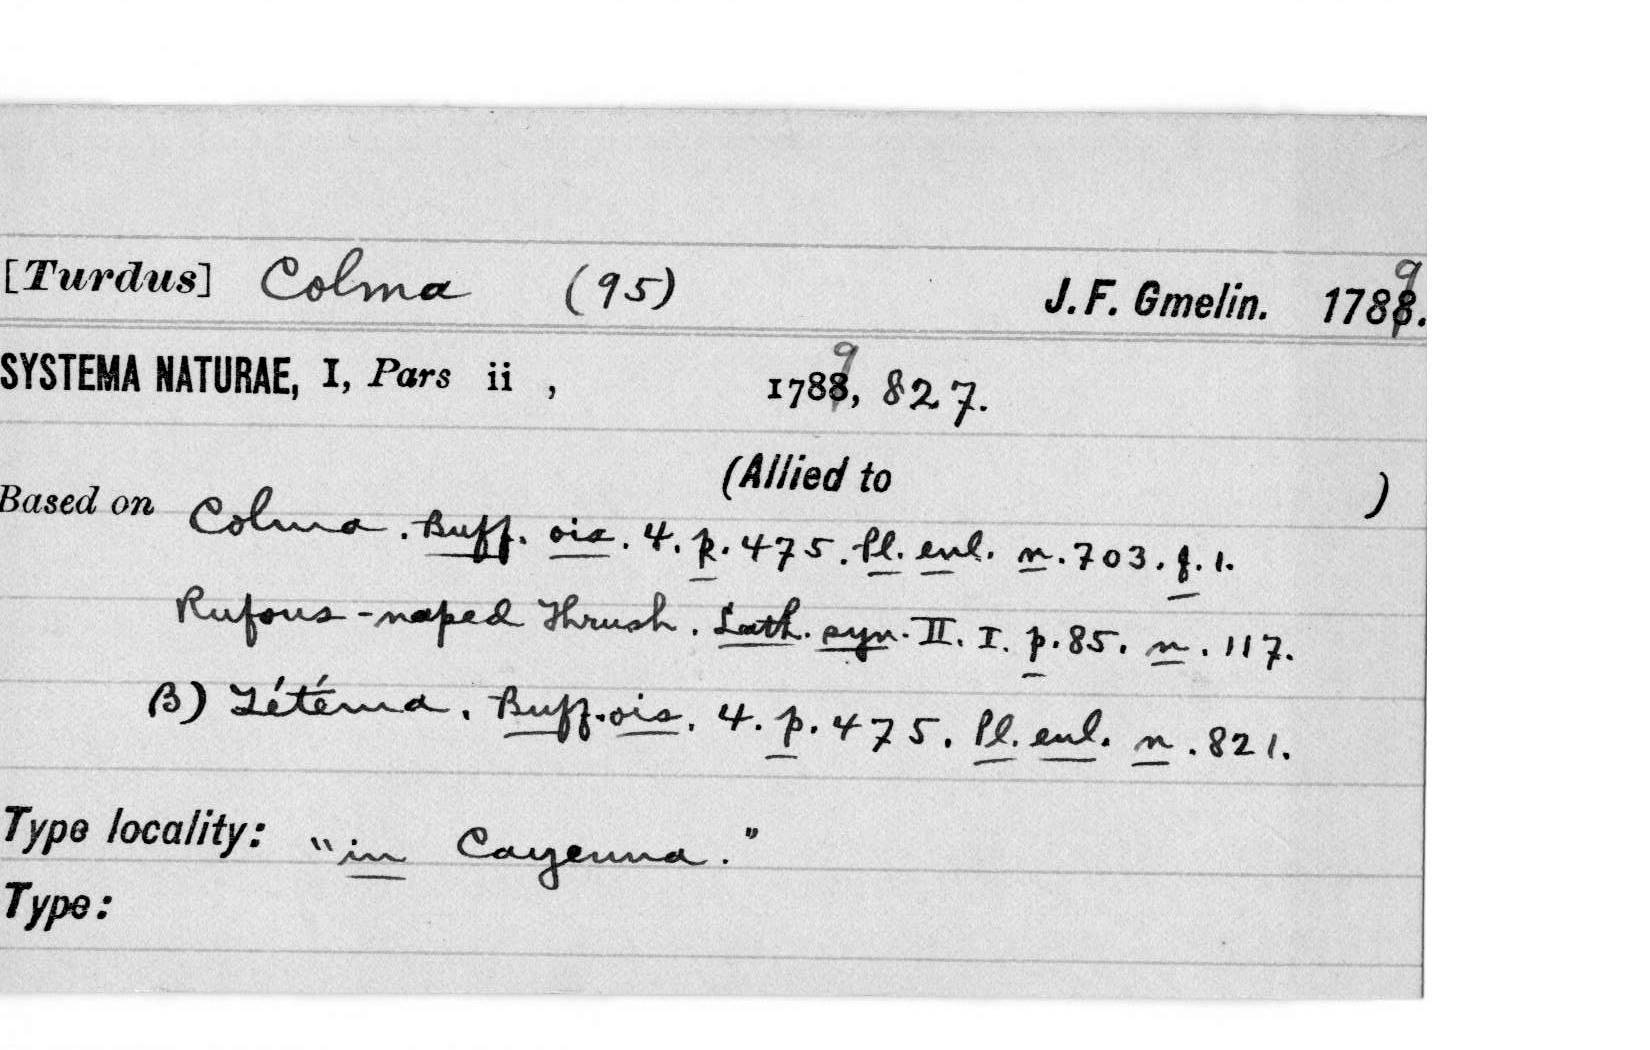 [Turdus] Colma (95) J. F. Gmelin. 1789.
SYSTEMA NATURAE, I, Pars ii , 1789, 827.
(Allied to )
Based on Colma. Buff. ois. 4. p. 475. Pl. enl. n. 703. f. 1.
Rufous-naped Thrush. Lath. syn. II. I. p. 85. n. 117.
β) Tétéma. Buff. ois. 4. p. 475. Pl. enl. n. 821.
Type locality: "in Cayenna."
Type: